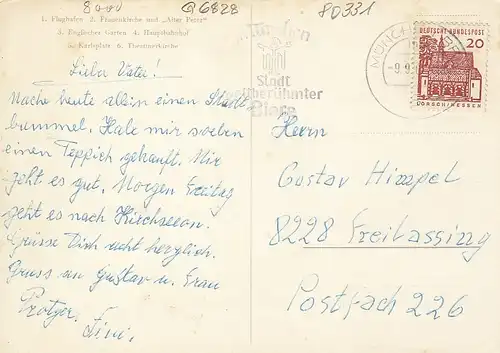 8000 @6828
8D331
1. Flughafen 2. Frauenkirche und „Alter Peter“
3. Englischer Garten 4. Hauptbahnhof
5. Karlsplatz 6. Theatinerkirche
München
Stadt
weltberühmter
Biere
MÜNCHEN
-9.9
DEUTSCHE BUNDESPOST
20
LORSCH/HESSEN
Lieber Vater!
Mache heute allein einen Stadt
bummel. Habe mir soeben
einen Teppich gekauft. Mir
geht es gut. Morgen Freitag
geht es nach Kirchseeon.
Grüsse Dich recht herzlich.
Gruss an Gustav u. Frau
Fini.
Herrn
Gustav Himpel
8228 Freilassing
Postfach 226